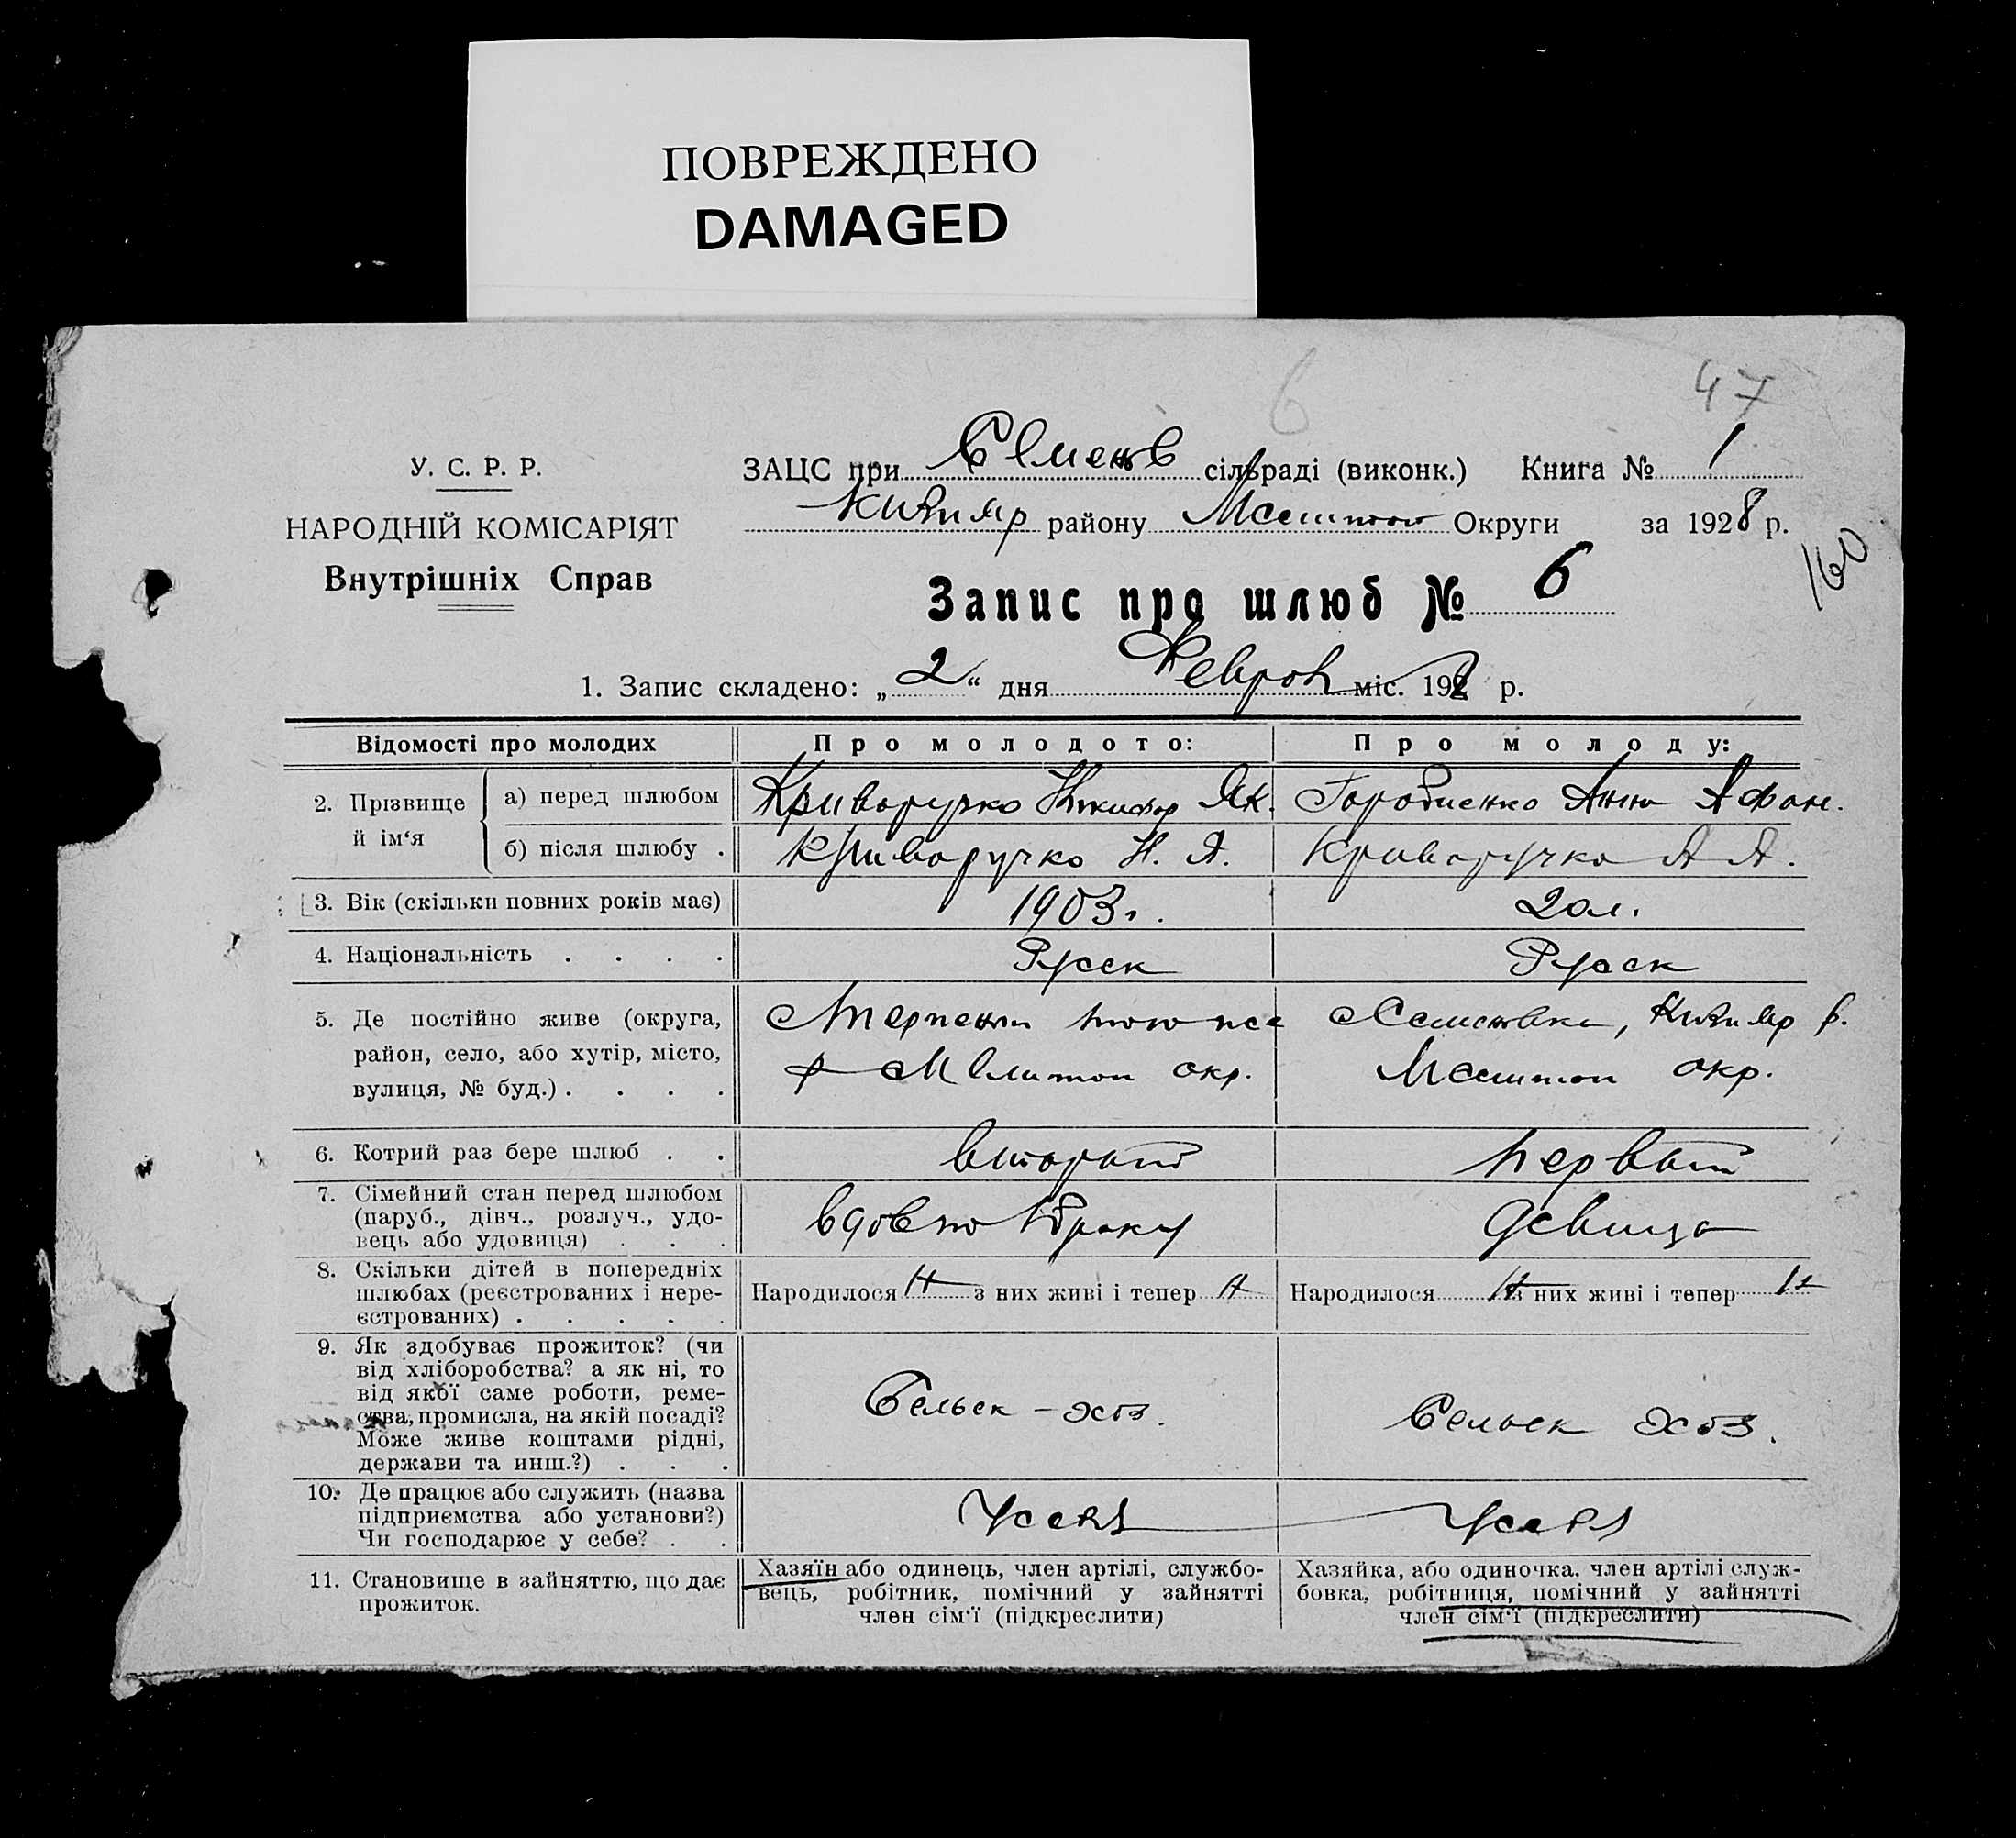 ПОВРЕЖДЕНО
DAMAGED
6
47
У. С. Р. Р.
НАРОДНІЙ КОМІСАРІЯТ
Внутрішніх Справ
ЗАЦС при Семенов сільраді (виконк.) Книга № 1
Кизияр району Мелитоп Округи за 1928 р.
160
Запис про шлюб № 6
1. Запис складено: „2“ дня Февраля міс. 1928 р.
Відомості про молодих Про молодого: Про молоду:
2. Прізвище й ім‘я
а) перед шлюбом Криворучко Никифор Як. Городненко Анна Афан.
б) після шлюбу . Криворучко Н. Я. Криворучко А А.
3. Вік (скільки повних років має) 1903 г. 20 л.
4. Національність . . . . Русск Русск
5. Де постійно живе (округа,
район, село, або хутір, місто,
вулиця, № буд.) . . . .
Терпения
р Мелитоп окр.
Семеновка, Кизияр р.
Мелитоп окр.
6. Котрий раз бере шлюб . . вторый первый
7. Сімейний стан перед шлюбом
(паруб., дівч., розлуч., удо-
вець або удовиця) . . .
вдов по браку
девица
8. Скільки дітей в попередніх
шлюбах (реєстрованих і нере-
єстрованих) . . . . .
Народилося Н з них живі і тепер Н
Народилося Н з них живі і тепер Н
9. Як здобуває прожиток? (чи
від хліборобства? а як ні, то
від якої саме роботи, реме-
ства, промисла, на якій посаді?
Може живе коштами рідні,
держави та инш.?) . . .
Сельск-хоз.
Сельск хоз.
10. Де працює або служить (назва
підприємства або установи?)
Чи господарює у себе? . .
У себя
У себя
11. Становище в зайняттю, що дає
прожиток.
Хазяїн або одинець, член артілі, службо-
вець, робітник, помічний у зайнятті
член сім‘ї (підкреслити)
Хазяйка, або одиночка, член артілі служ-
бовка, робітниця, помічний у зайнятті
член сім‘ї (підкреслити)